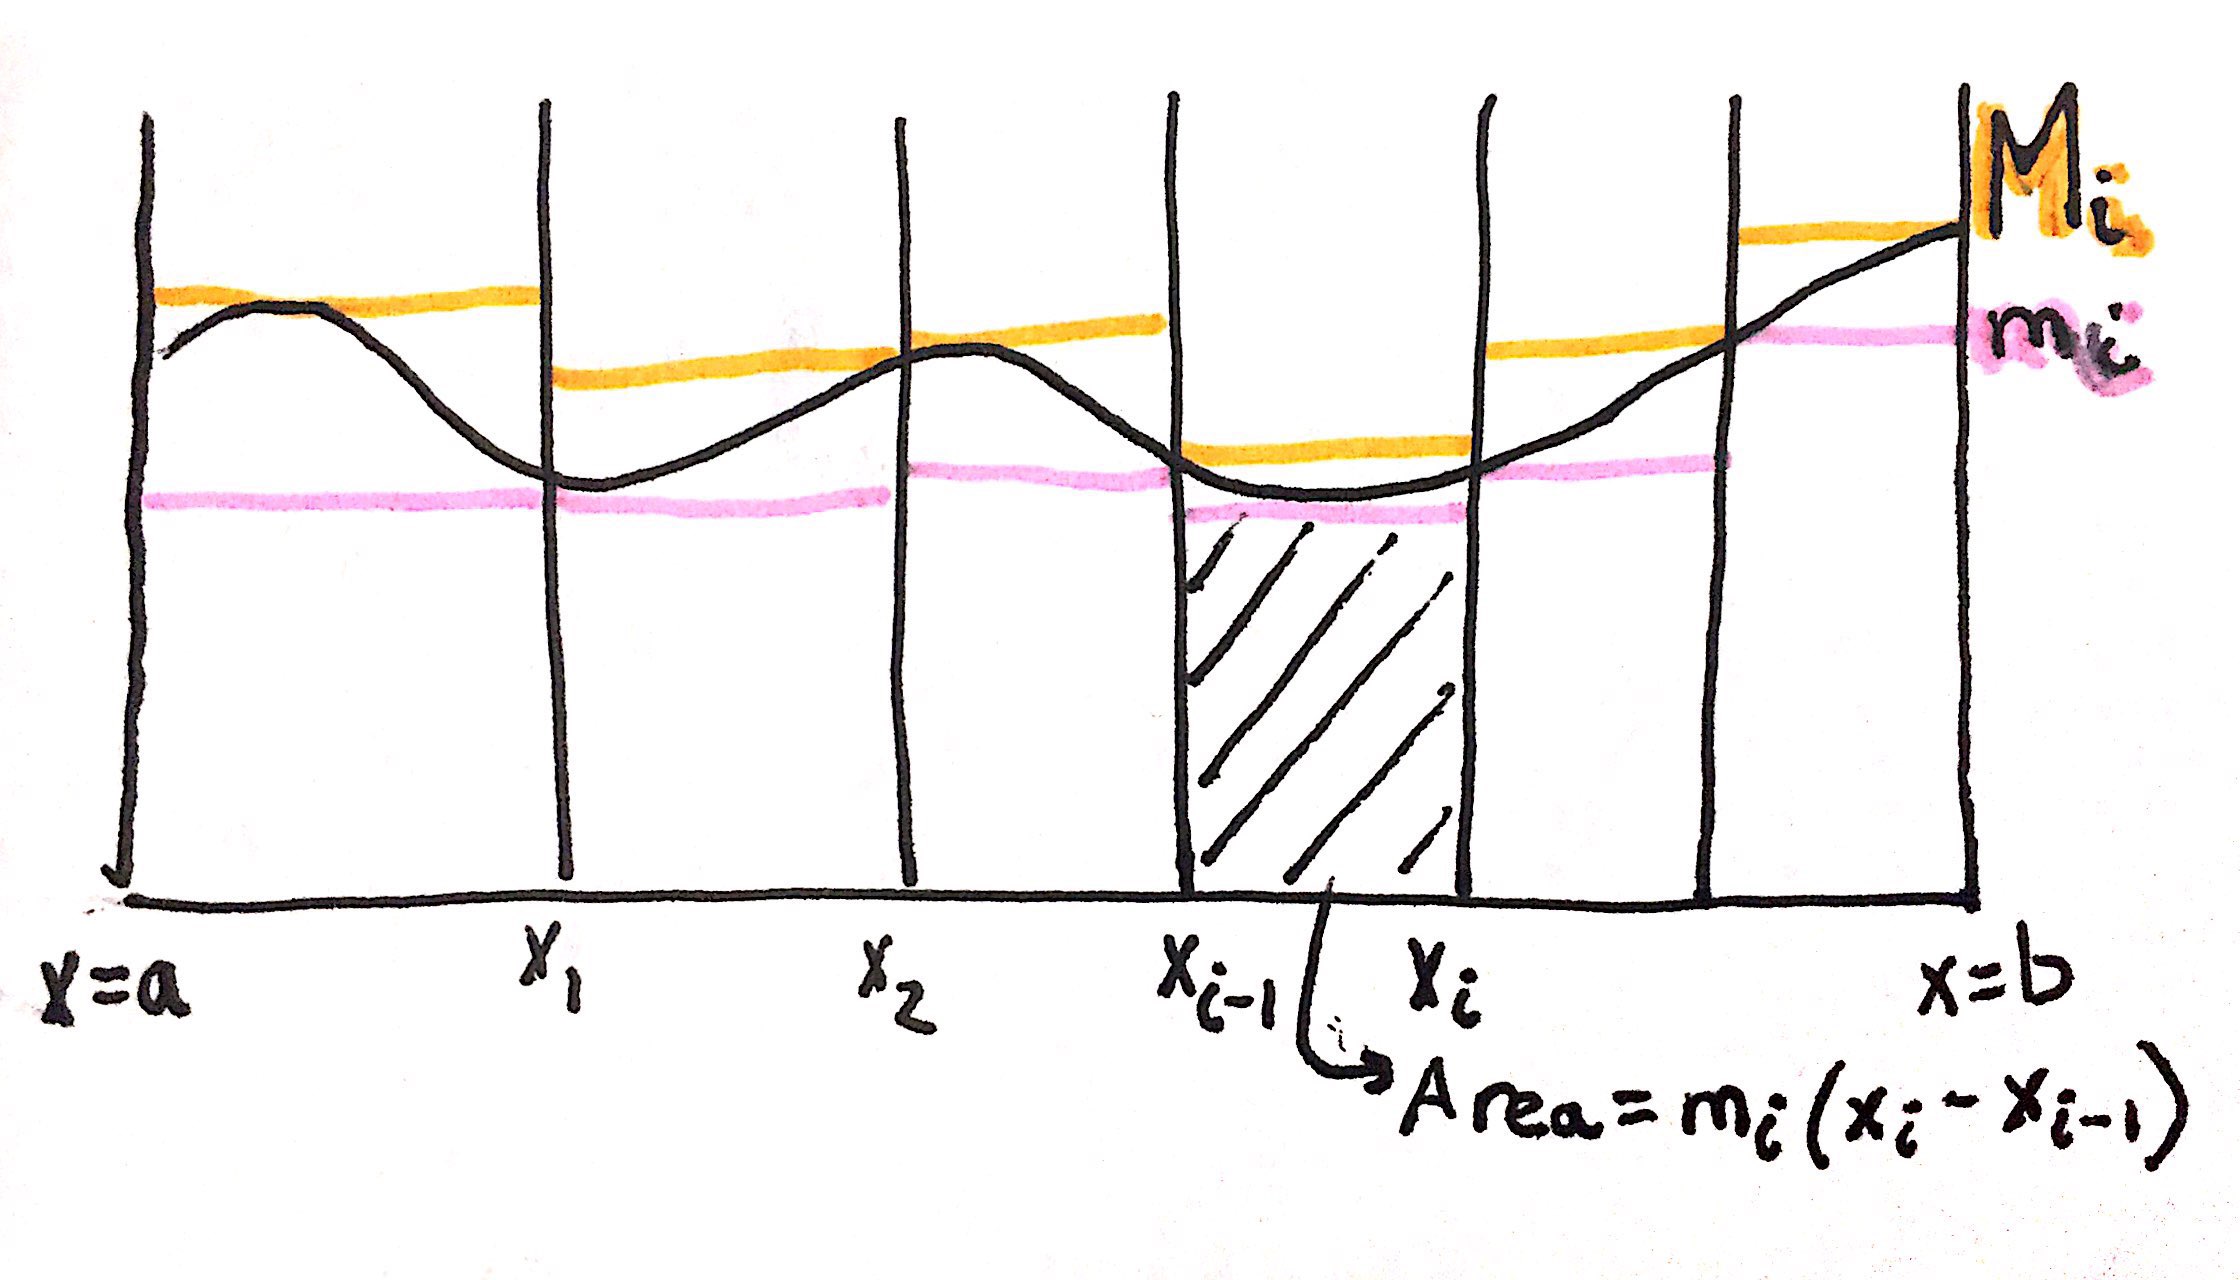 Mᵢ
mᵢ
x=a x₁ x₂ xᵢ₋₁ xᵢ x=b
Area = mᵢ(xᵢ - xᵢ₋₁)